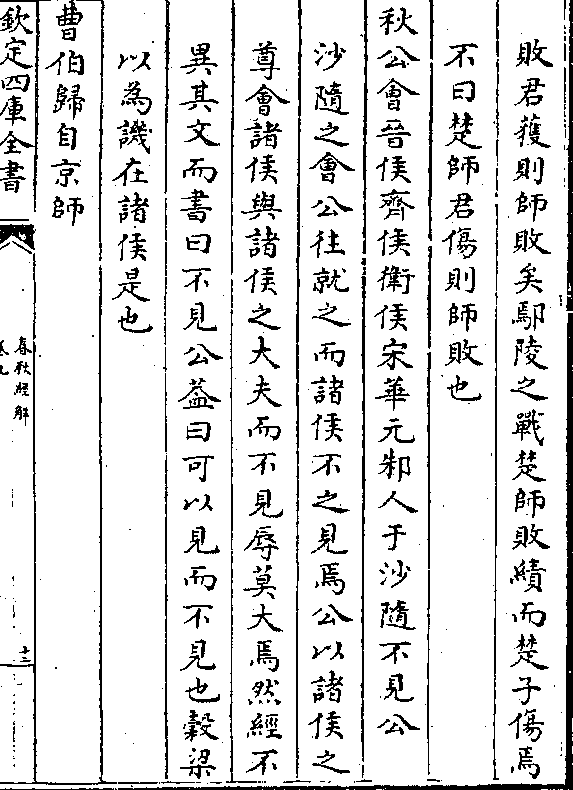 敗君獲則師敗矣鄢陵之戰楚師敗績而楚子傷焉
不曰楚師君傷則師敗也
秋公會晉侯齊侯衛侯宋華元邾人于沙隨不見公
沙隨之會公往就之而諸侯不之見焉公以諸侯之
尊會諸侯與諸侯之大夫而不見辱莫大焉然經不
異其文而書曰不見公葢曰可以見而不見也穀梁
以為譏在諸侯是也
曹伯歸自京師
欽定四庫全書
春秋經解
卷九
十三